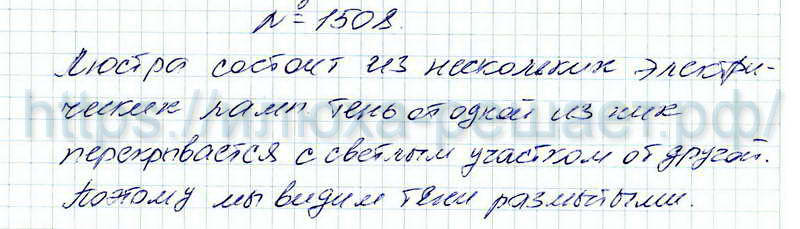 № 1508.
Люстра состоит из нескольких электри-
ческих ламп. тень от одной из них
перекрывается с светлым участком от другой.
Поэтому мы видим тени размытыми.
https://илюха-решает.рф/